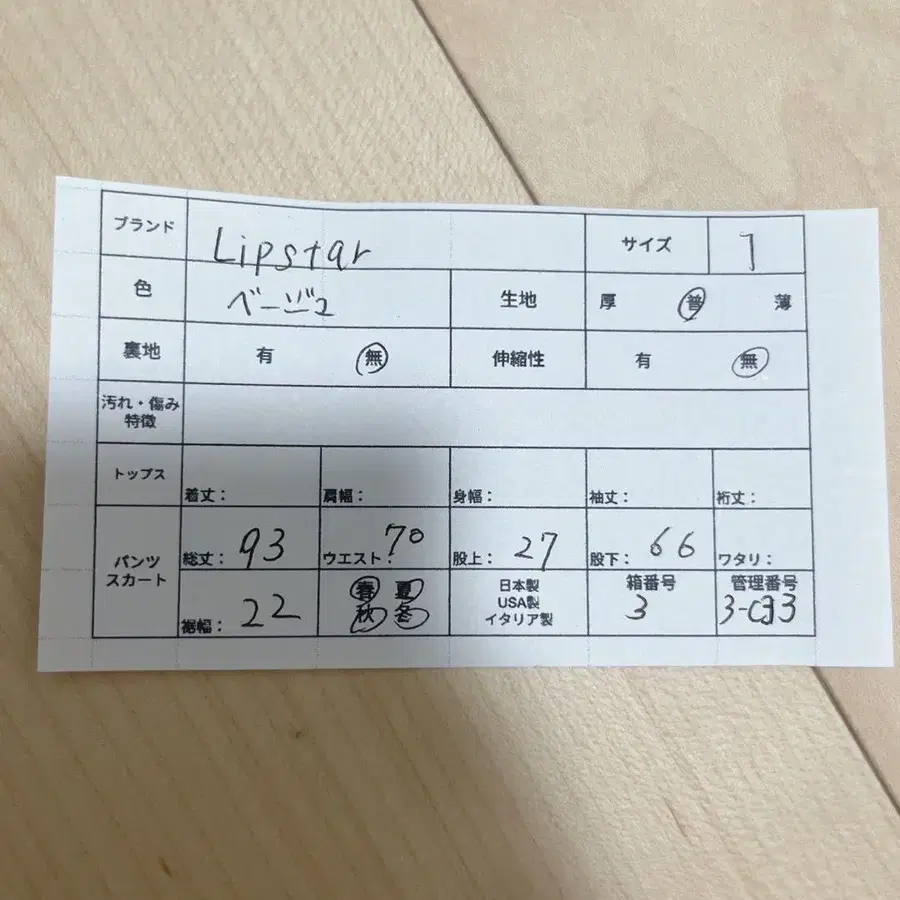 ブランド Lipstar サイズ 7
色 ベージュ 生地 厚 普 薄
裏地 有 無 伸縮性 有 無
汚れ・傷み
特徴
トップス 着丈： 肩幅： 身幅： 袖丈： 裄丈：
パンツ
スカート
総丈： 93 ウエスト： 70 股上： 27 股下： 66 ワタリ：
裾幅： 22
春 夏
秋 冬
日本製
USA製
イタリア製
箱番号
3
管理番号